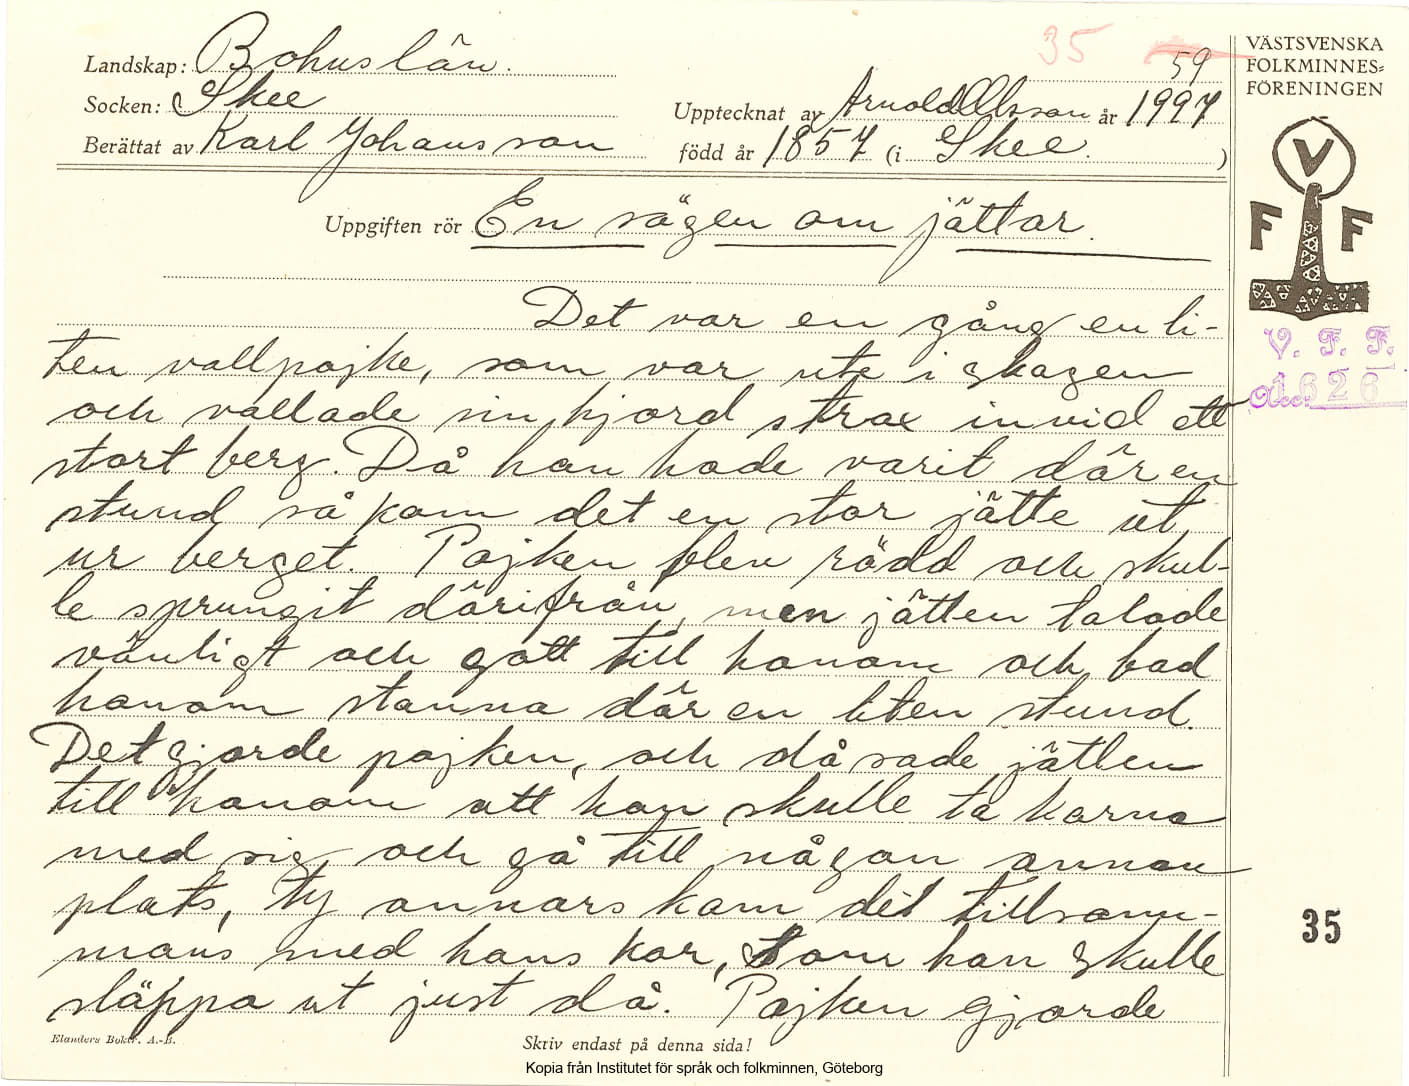 35
59
VÄSTSVENSKA
FOLKMINNES=
FÖRENINGEN
Landskap: Bohuslän.
Socken: Skee
Upptecknat av Arnold Olsson år 1927
Berättat av Karl Johansson
född år 1857 (i Skee.)
Uppgiften rör En sägen om jättar.
V
F F
V. F. F.
1626
Det var en gång en li-
ten vallpojke, som var ute i skogen
och vallade sin hjord strax invid ett
stort berg. Då han hade varit där en
stund så kom det en stor jätte ut
ur berget. Pojken blev rädd och skul-
le sprungit därifrån, men jätten talade
vänligt och gott till honom och bad
honom stanna där en liten stund.
Det gjorde pojken, och då sade jätten
till honom att han skulle ta korna
med sig och gå till någon annan
plats, ty annars kom det tillsam-
mans med hans kor, som han skulle
släppa ut just då. Pojken gjorde
35
Elanders Boktr. A.-B.
Skriv endast på denna sida!
Kopia från Institutet för språk och folkminnen, Göteborg